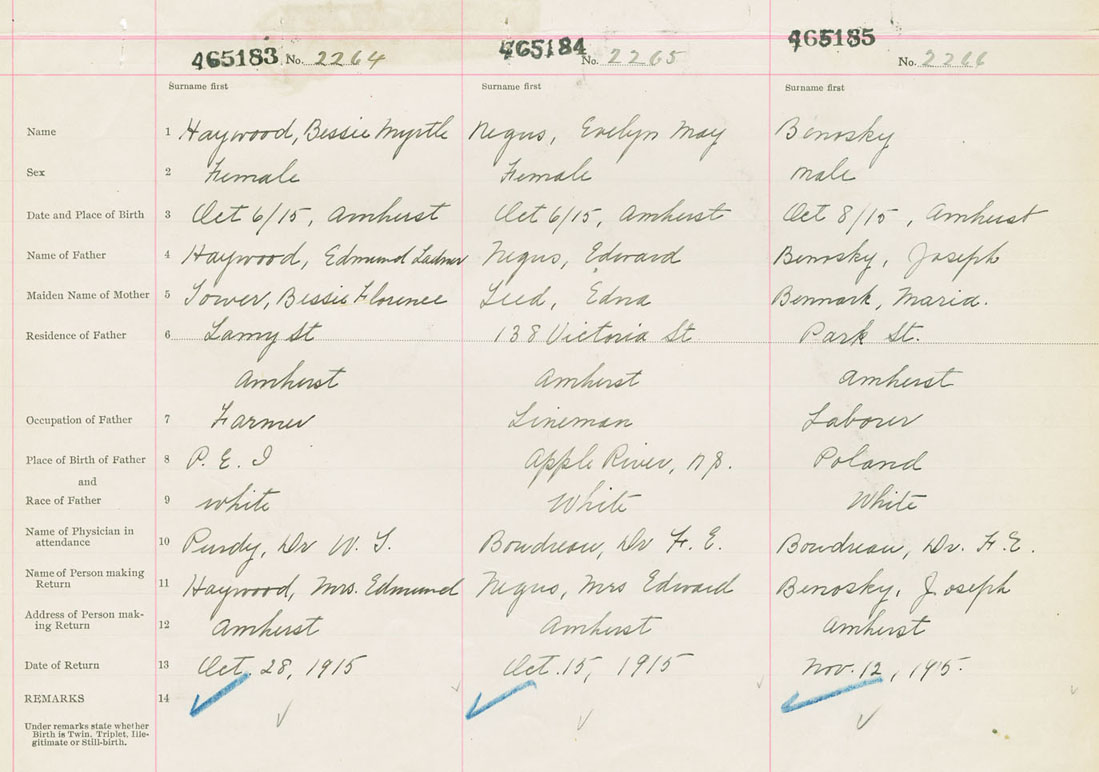 465183 No. 2264 465184 No. 2265 465185 No. 2266
Surname first Surname first Surname first
Name 1 Haywood, Bessie Myrtle Negus, Evelyn May Benosky
Sex 2 Female Female male
Date and Place of Birth 3 Oct 6/15, Amherst Oct 6/15, Amherst Oct 8/15, Amherst
Name of Father 4 Haywood, Edmund Negus, Edward Benosky, Joseph
Maiden Name of Mother 5 Tower, Bessie Florence Leed, Edna Benmark, Maria.
Residence of Father 6 Lamy St 138 Victoria St Park St.
Amherst Amherst Amherst
Occupation of Father 7 Farmer Lineman Laborer
Place of Birth of Father 8 P. E. I Apple River, N.S. Poland
and
Race of Father 9 white White White
Name of Physician in
attendance 10 Purdy, Dr W. T. Boudreau, Dr F. E. Boudreau, Dr. F. E.
Name of Person making
Return 11 Haywood, Mrs. Edmund Negus, Mrs Edward Benosky, Joseph
Address of Person mak-
ing Return 12 Amherst Amherst Amherst
Date of Return 13 Oct. 28, 1915 Oct. 15, 1915 Nov. 12, 1915.
REMARKS 14
Under remarks state whether
Birth is Twin, Triplet, Ille-
gitimate or Still-birth.